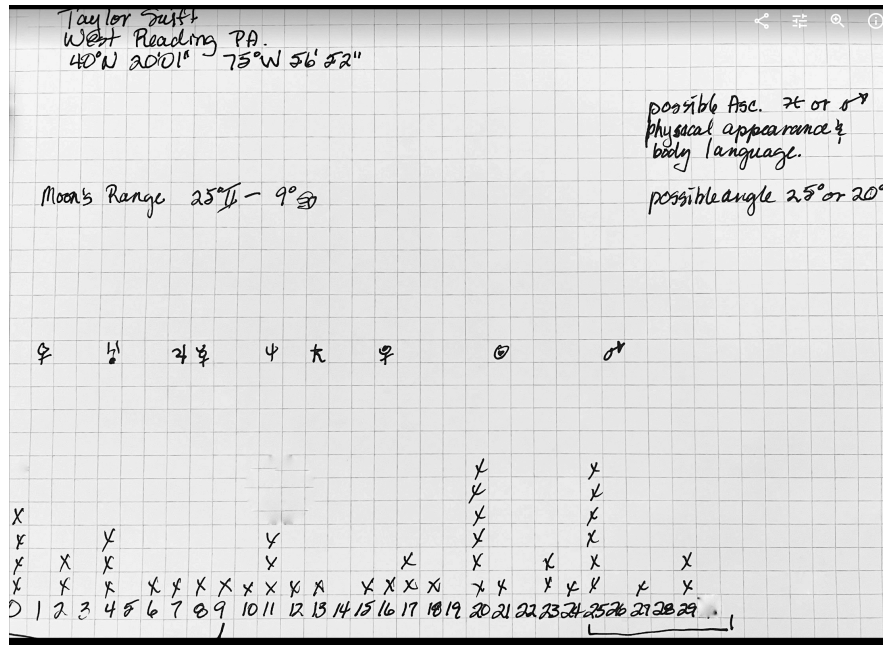 Taylor Swift
West Reading PA.
40°N 20'01" 75°W 56' 52"
possible Asc. ♓ or ♂
physical appearance &
body language.
Moon's Range 25° ♊ - 9° ♋
possible angle 25° or 20°
♀ ♃ ☿ ♆ ♀ ☉ ♂
X X
X X
X X X
X X X X X
X X X X X X X X
X X X X X X X X X X X X X X X X X X X X
0 1 2 3 4 5 6 7 8 9 10 11 12 13 14 15 16 17 18 19 20 21 22 23 24 25 26 27 28 29